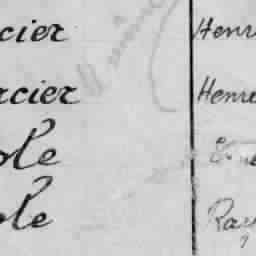 cier Henr
rcier Henre
ole
ole Ray